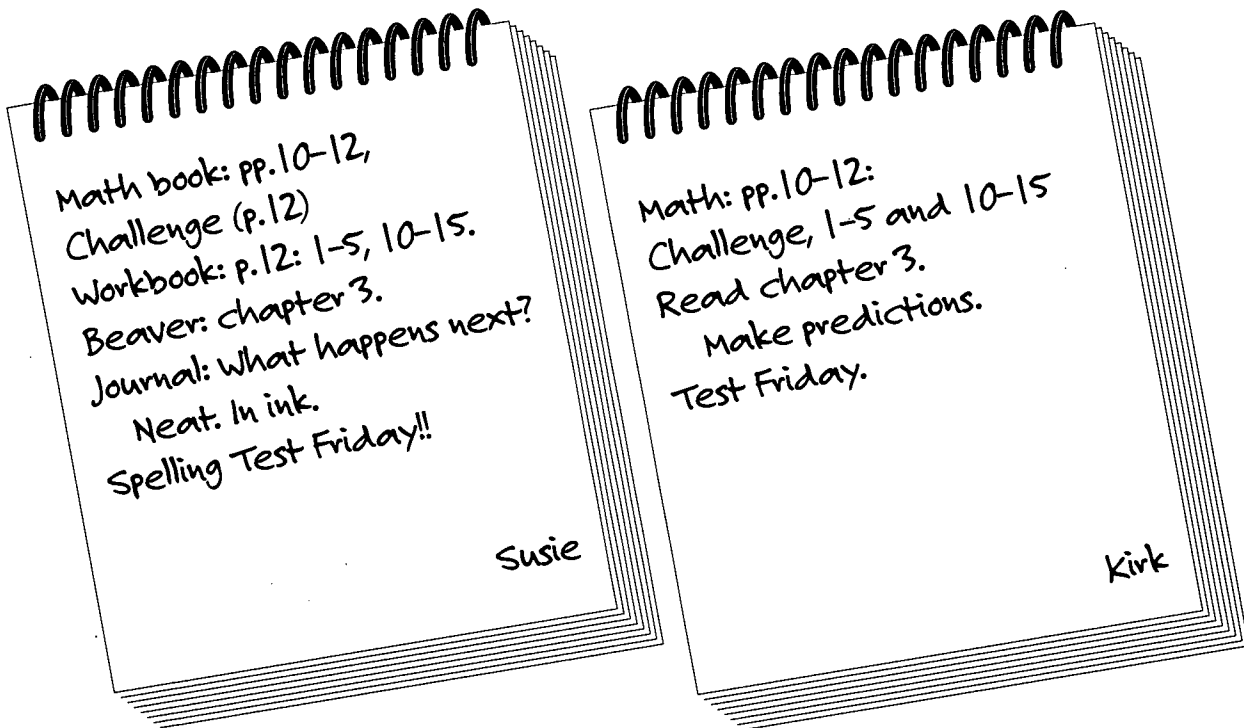 Math book: pp.10-12,
Challenge (p.12)
Workbook: p.12: 1-5, 10-15.
Beaver: chapter 3.
Journal: What happens next?
Neat. In ink.
Spelling Test Friday!!
Susie
Math: pp.10-12:
Challenge, 1-5 and 10-15
Read chapter 3.
Make predictions.
Test Friday.
Kirk